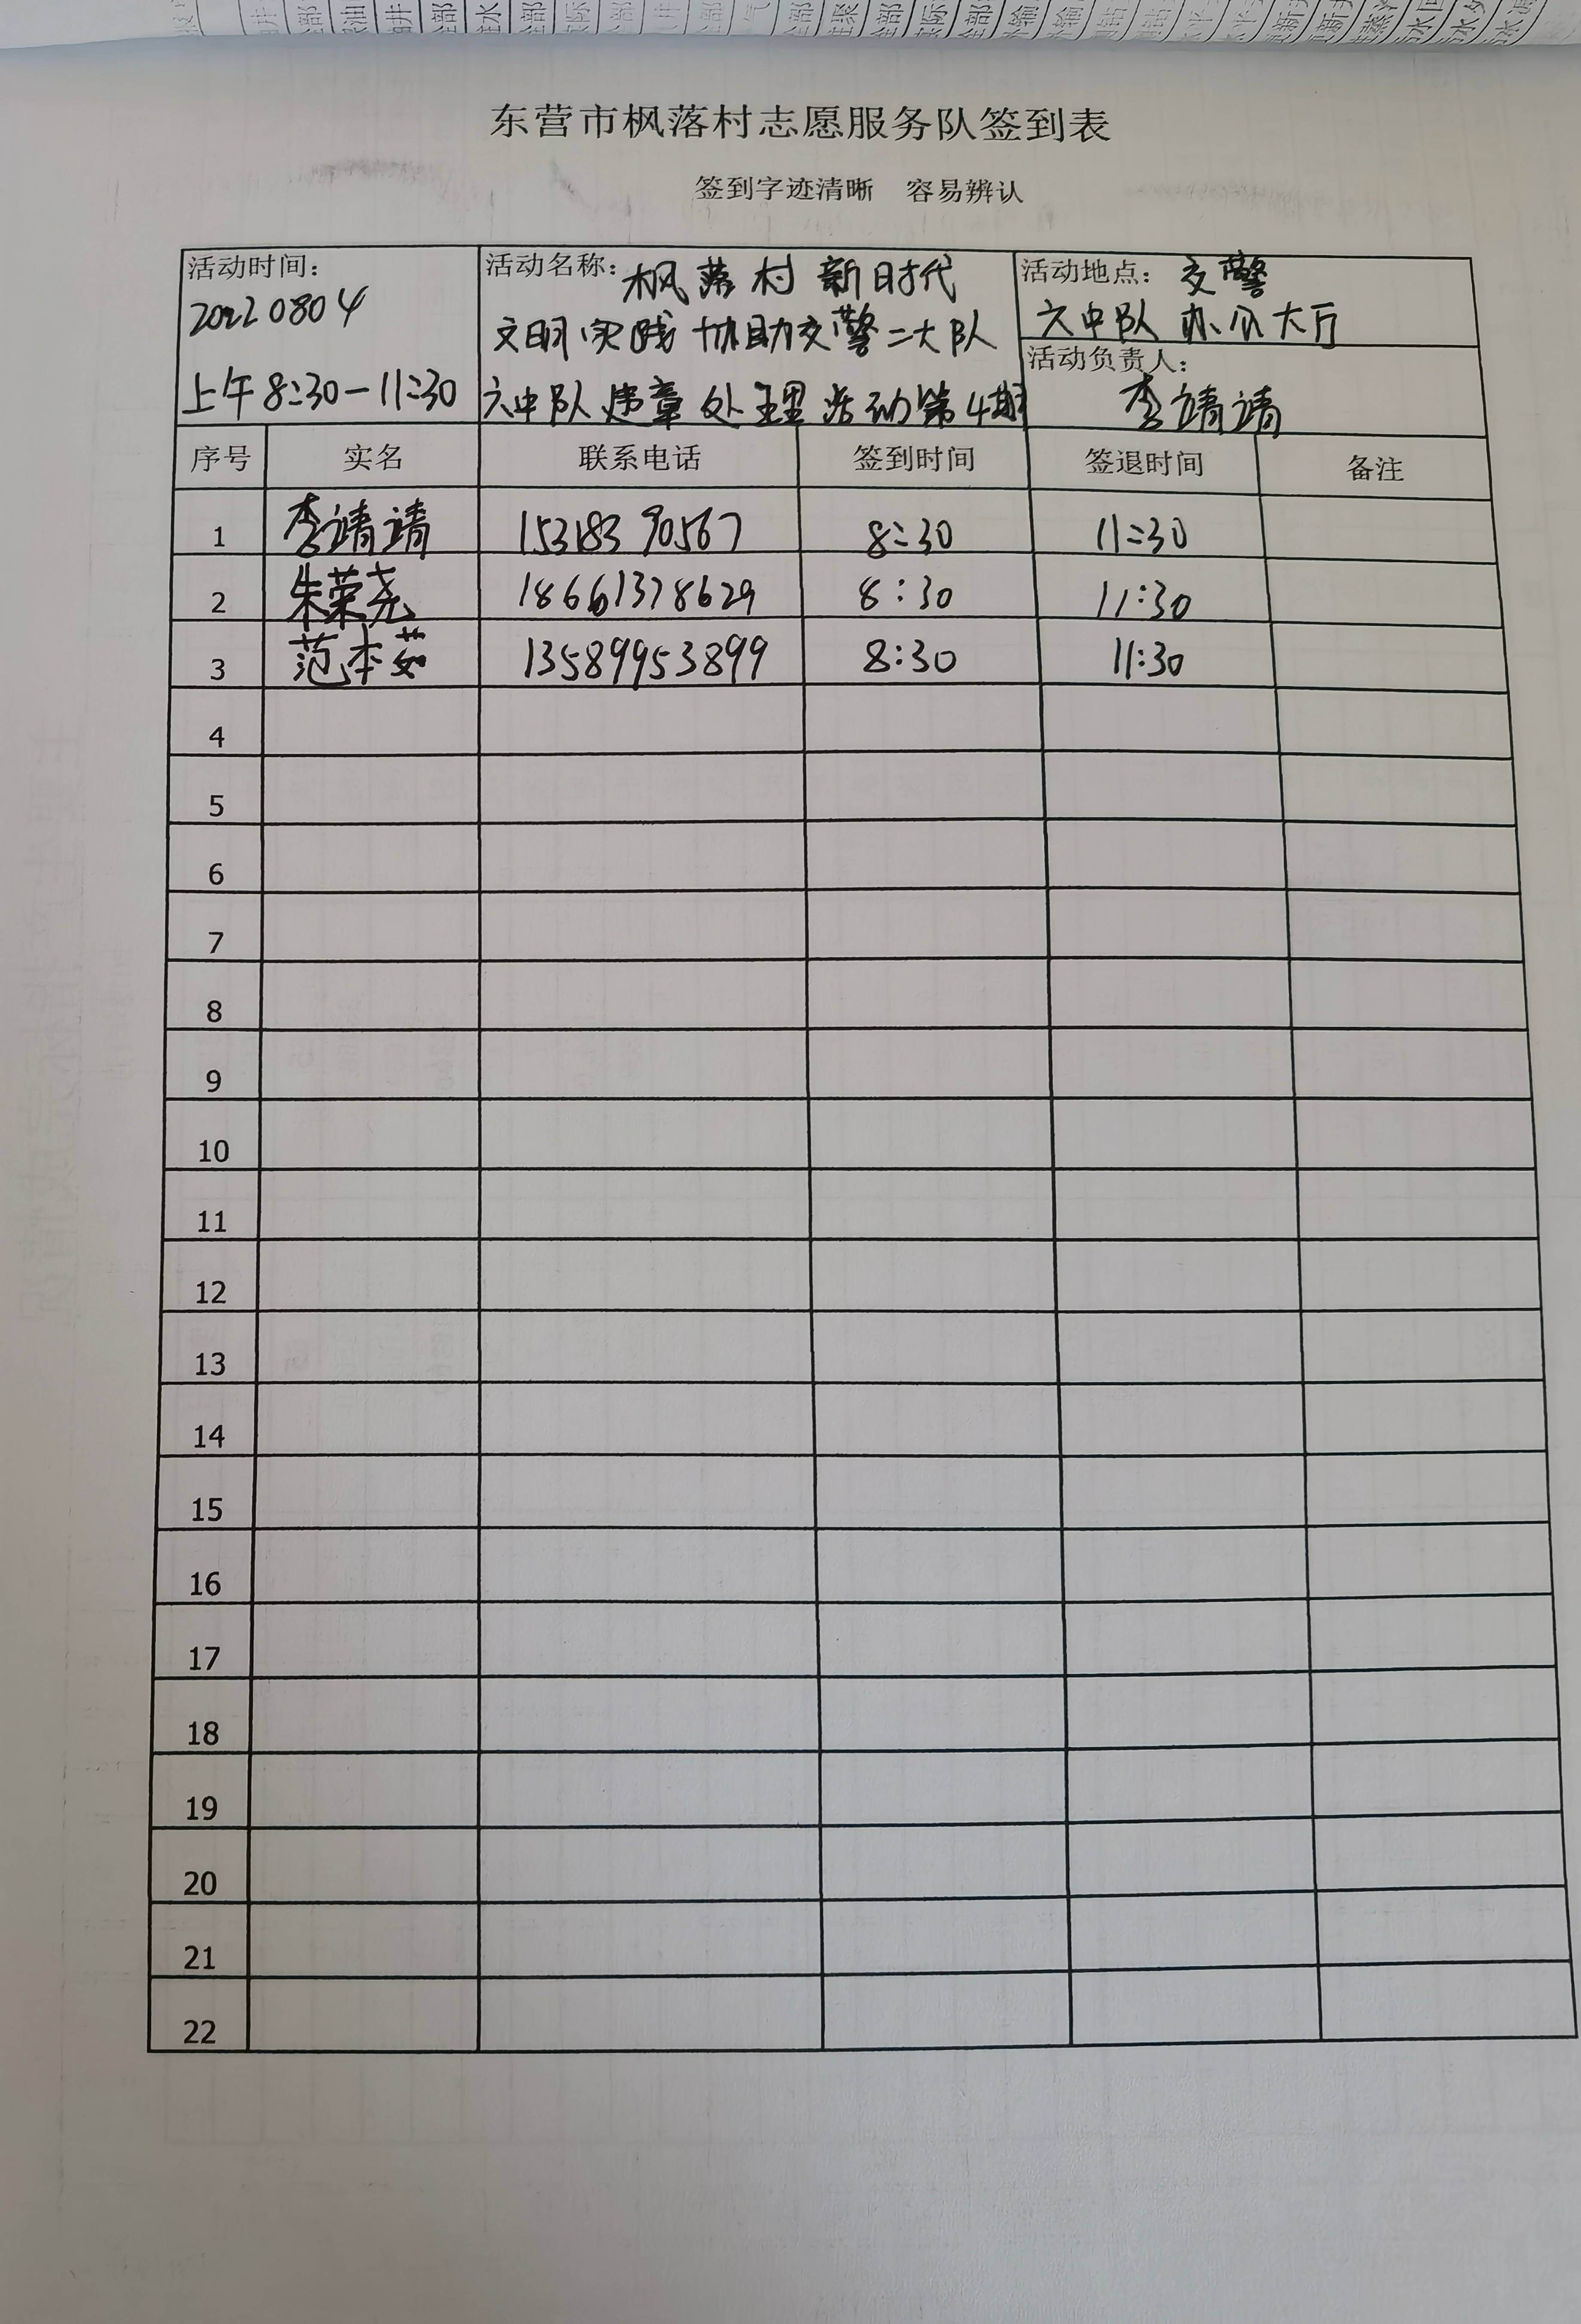 东营市枫落村志愿服务队签到表
签到字迹清晰 容易辨认
活动时间:
20220804
上午8:30-11:30
活动名称: 枫落村新时代
文明实践协助交警二大队
六中队违章处理活动第4期
活动地点: 交警
六中队办公大厅
活动负责人:
李靖靖
序号 实名 联系电话 签到时间 签退时间 备注
1 李靖靖 15318390567 8:30 11:30
2 朱荣尧 18661378629 8:30 11:30
3 范本茹 13589953899 8:30 11:30
4
5
6
7
8
9
10
11
12
13
14
15
16
17
18
19
20
21
22